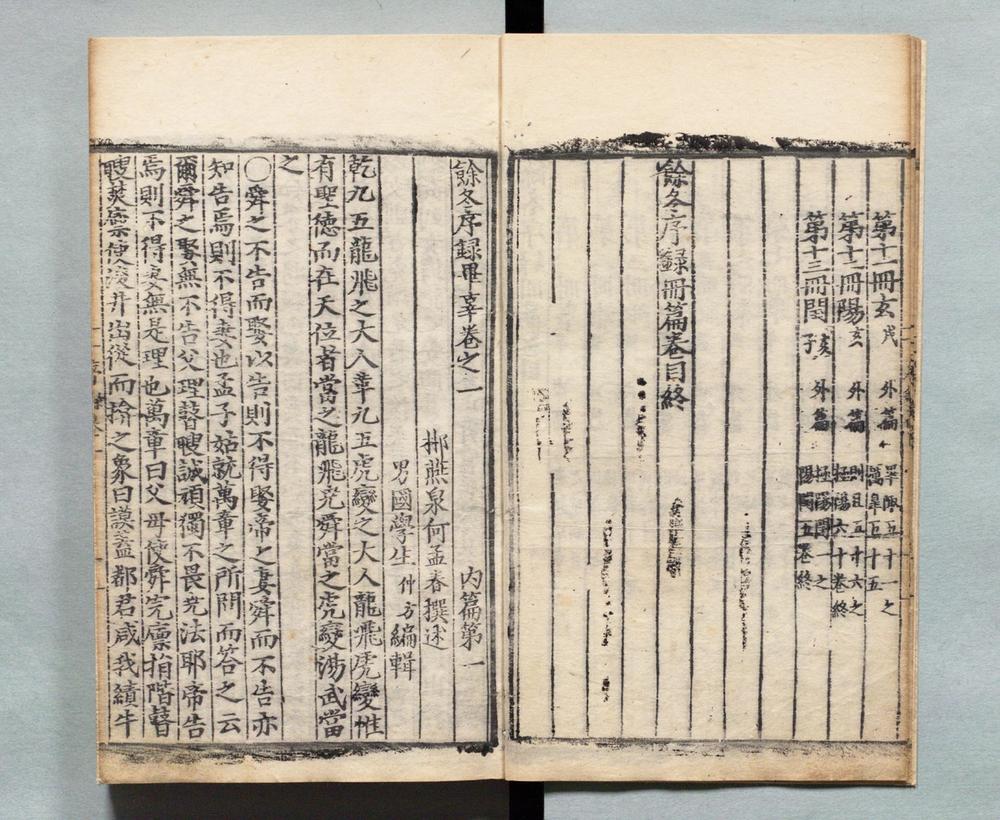 第十一冊玄 戌 外篇 畢陬五十一之
塞皐五十五
第十二冊陽 玄 外篇 則且五十六之
極陽六十卷終
第十三冊閏 亥子 外篇 極陽閏一之
陽閏五卷終
餘冬序錄冊篇卷目終
餘冬序録畢辜卷之一 内篇第一
郴燕泉何孟春撰述
男國學生仲方編輯
乾九五龍飛之大人革九五虎變之大人龍飛虎變惟
有聖徳而在天位者當之龍飛堯舜當之虎變湯武當
之
〇舜之不告而娶以告則不得娶帝之妻舜而不告亦
知告焉則不得妻也孟子姑就萬章之所問而答之云
爾舜之娶無不告父理瞽瞍誠頑獨不畏堯法耶帝告
焉則不得妻無是理也萬章曰父母使舜完廩捐階瞽
瞍焚廩使浚井出從而揜之象曰謨蓋都君咸我績牛